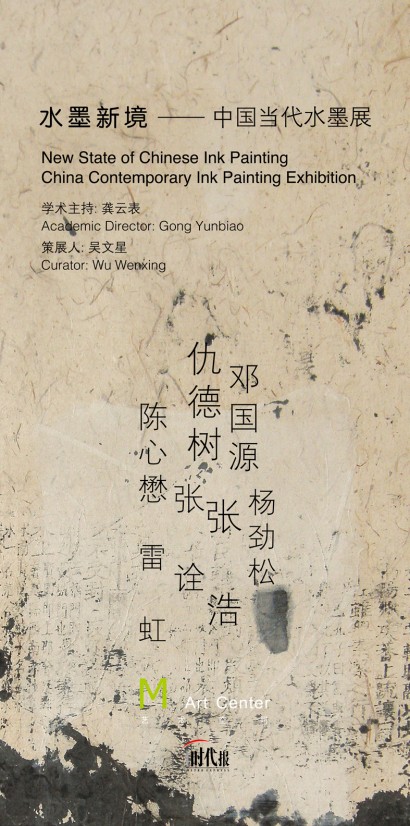 水墨新境 —— 中国当代水墨展
New State of Chinese Ink Painting
China Contemporary Ink Painting Exhibition
学术主持: 龚云表
Academic Director: Gong Yunbiao
策展人: 吴文星
Curator: Wu Wenxing
仇德树
邓国源
陈心懋
张诠
张浩
杨劲松
雷虹
M Art Center
时代报